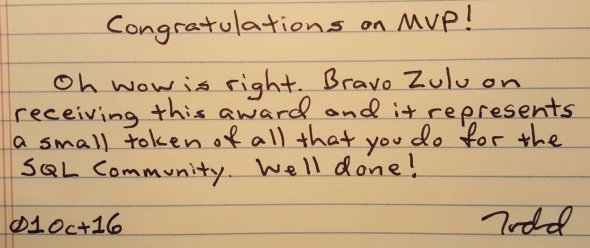 Congratulations on MVP!
Oh wow is right. Bravo Zulu on
receiving this award and it represents
a small token of all that you do for the
SQL Community. Well done!
Ø1Oct16 Todd